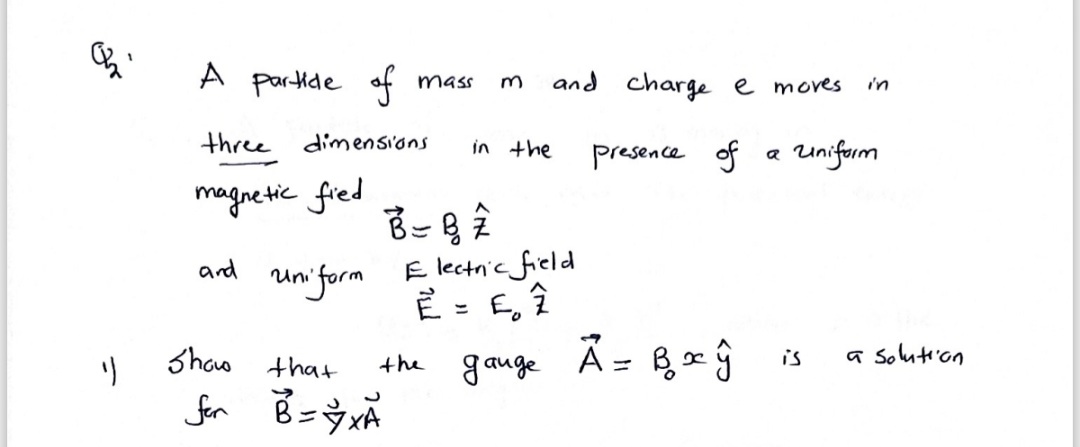 Q2.
A particle of mass m and charge e moves in
three dimensions in the presence of a uniform
magnetic fied
B⃗ = B₀ ẑ
and uniform Electric field
E⃗ = E₀ ẑ
1) Show that the gauge A⃗ = B₀ x ŷ is a solution
for B⃗ = ∇⃗ × A⃗